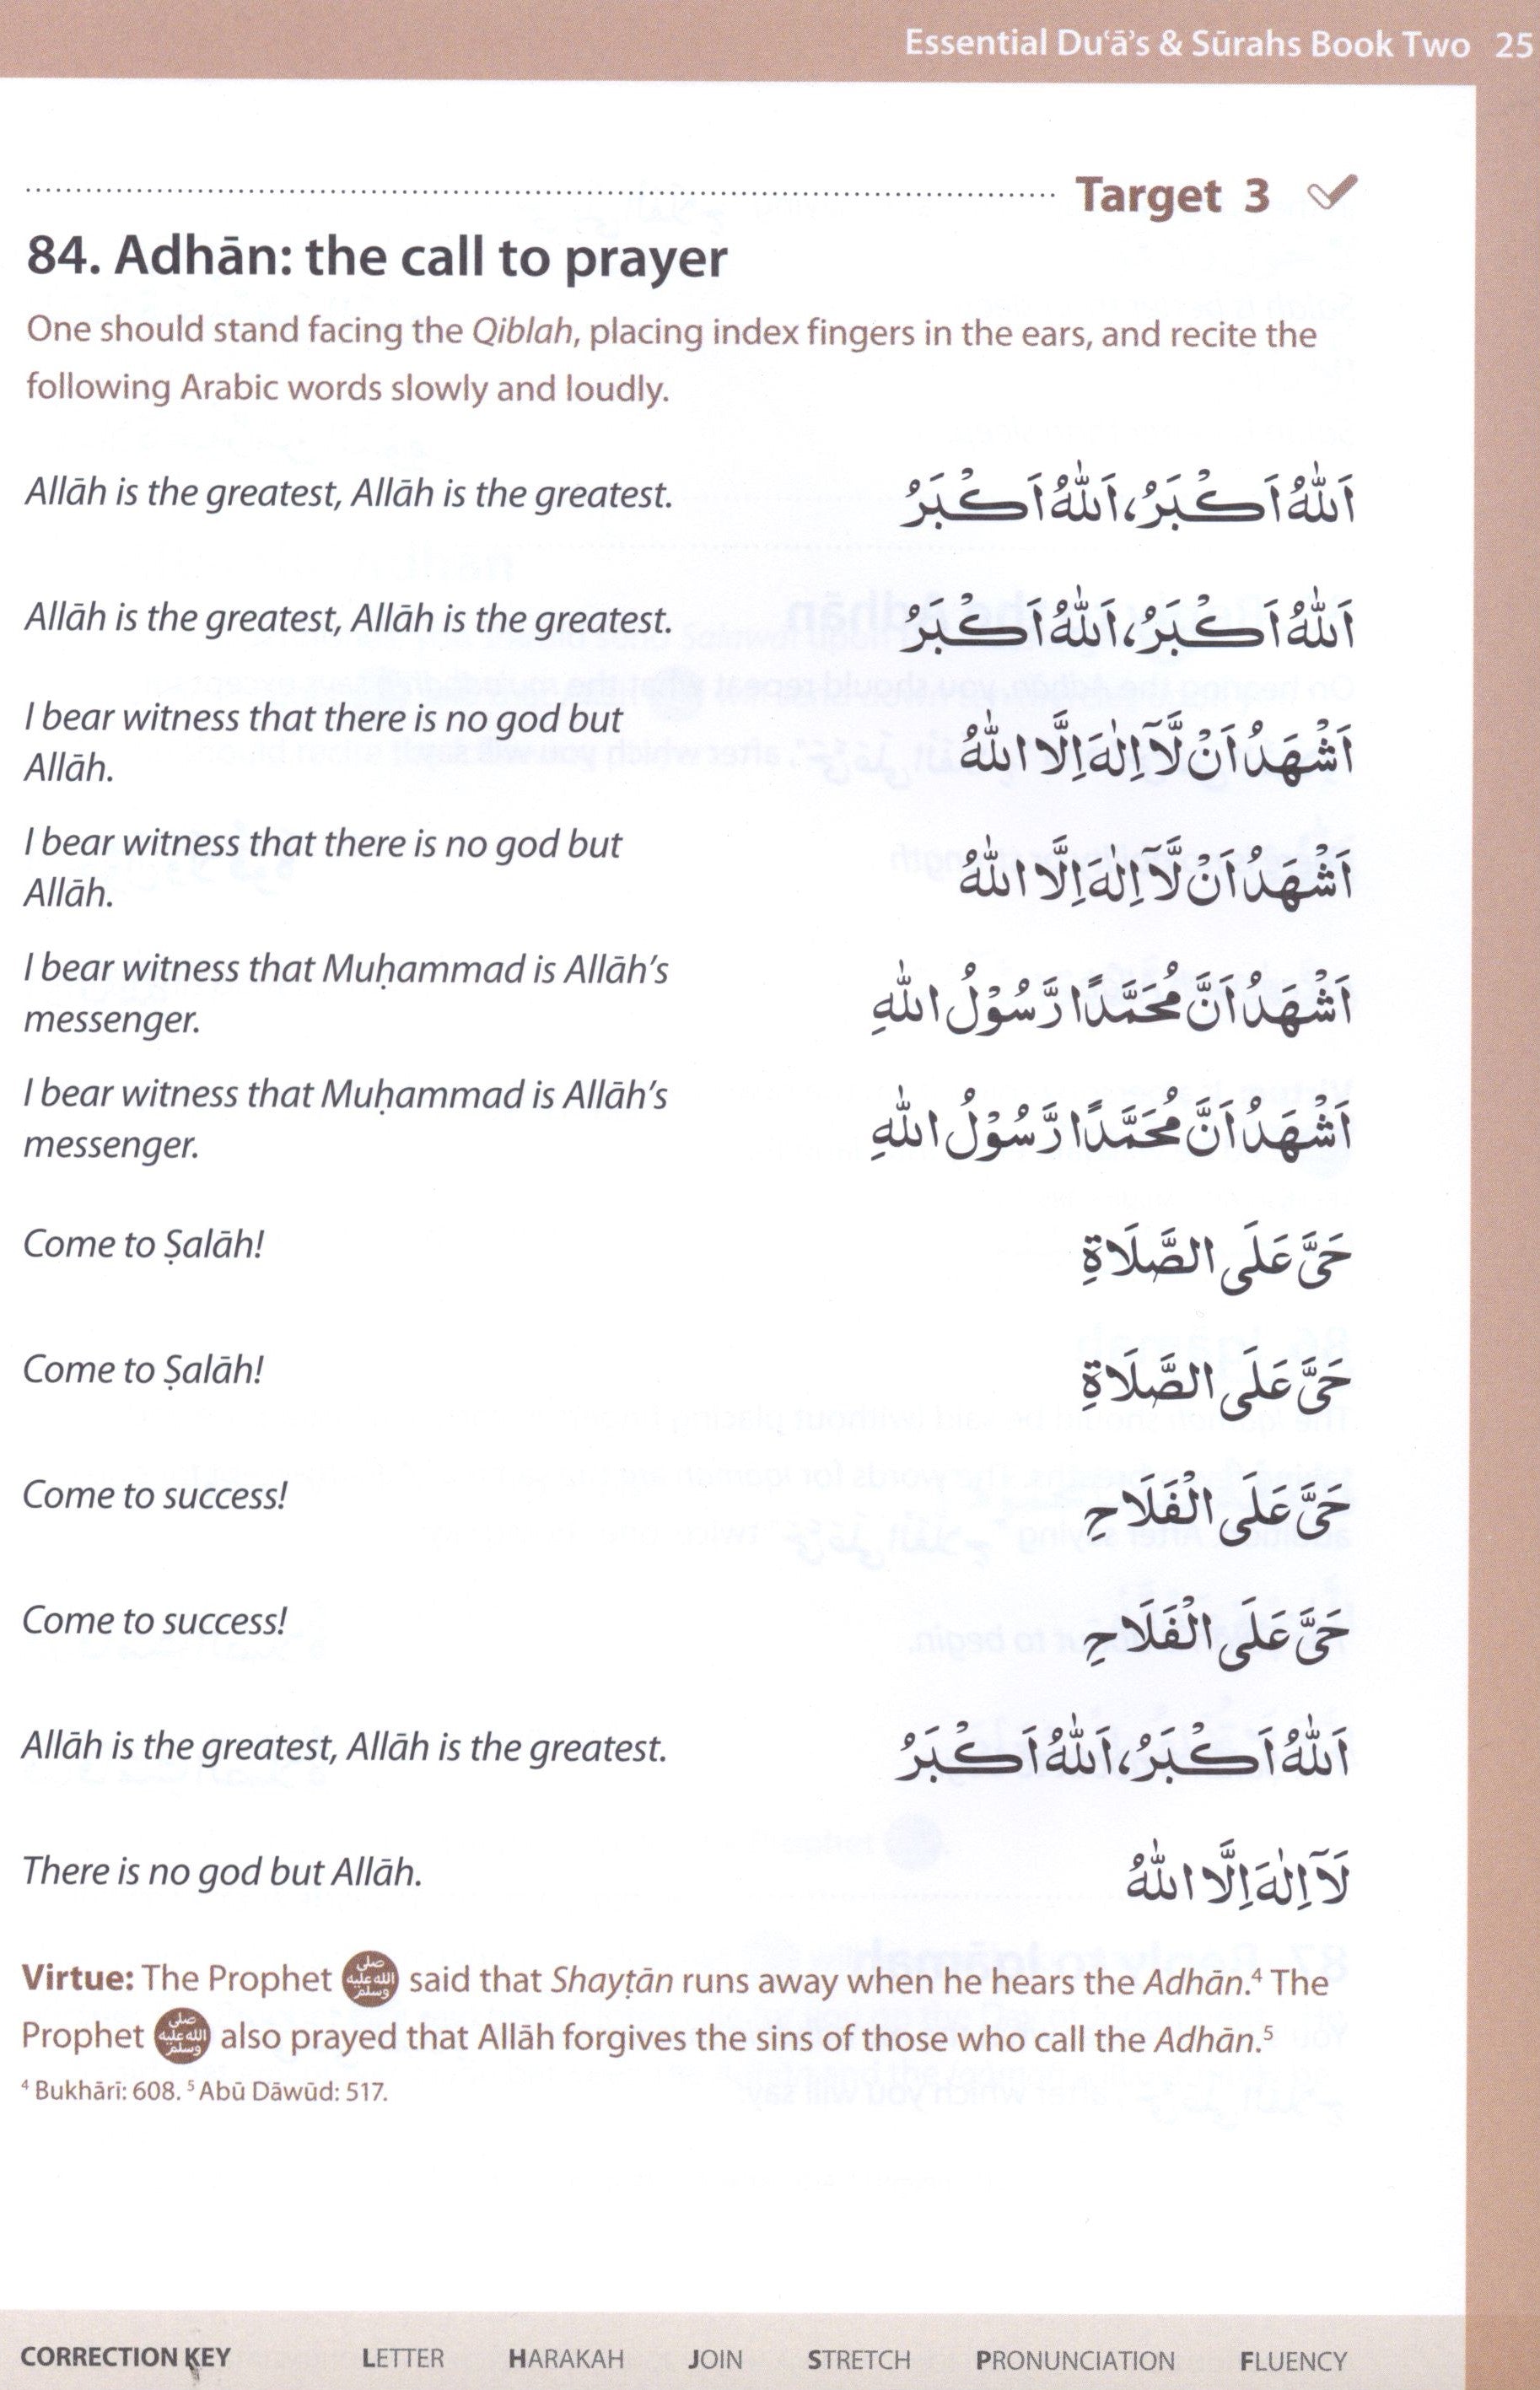 Essential Du‘ā’s & Sūrahs Book Two 25
Target 3
84. Adhān: the call to prayer
One should stand facing the Qiblah, placing index fingers in the ears, and recite the
following Arabic words slowly and loudly.
Allāh is the greatest, Allāh is the greatest. اَللّٰهُ اَكْبَرُ، اَللّٰهُ اَكْبَرُ
Allāh is the greatest, Allāh is the greatest. اَللّٰهُ اَكْبَرُ، اَللّٰهُ اَكْبَرُ
I bear witness that there is no god but
Allāh. اَشْهَدُ اَنْ لَّآ اِلٰهَ اِلَّا اللّٰهُ
I bear witness that there is no god but
Allāh. اَشْهَدُ اَنْ لَّآ اِلٰهَ اِلَّا اللّٰهُ
I bear witness that Muḥammad is Allāh’s
messenger. اَشْهَدُ اَنَّ مُحَمَّدًا رَّسُوْلُ اللّٰهِ
I bear witness that Muḥammad is Allāh’s
messenger. اَشْهَدُ اَنَّ مُحَمَّدًا رَّسُوْلُ اللّٰهِ
Come to Ṣalāh! حَيَّ عَلَى الصَّلَاةِ
Come to Ṣalāh! حَيَّ عَلَى الصَّلَاةِ
Come to success! حَيَّ عَلَى الْفَلَاحِ
Come to success! حَيَّ عَلَى الْفَلَاحِ
Allāh is the greatest, Allāh is the greatest. اَللّٰهُ اَكْبَرُ، اَللّٰهُ اَكْبَرُ
There is no god but Allāh. لَآ اِلٰهَ اِلَّا اللّٰهُ
Virtue: The Prophet صلى الله عليه وسلم said that Shayṭān runs away when he hears the Adhān.⁴ The
Prophet صلى الله عليه وسلم also prayed that Allāh forgives the sins of those who call the Adhān.⁵
⁴ Bukhārī: 608. ⁵ Abū Dāwūd: 517.
CORRECTION KEY LETTER HARAKAH JOIN STRETCH PRONUNCIATION FLUENCY